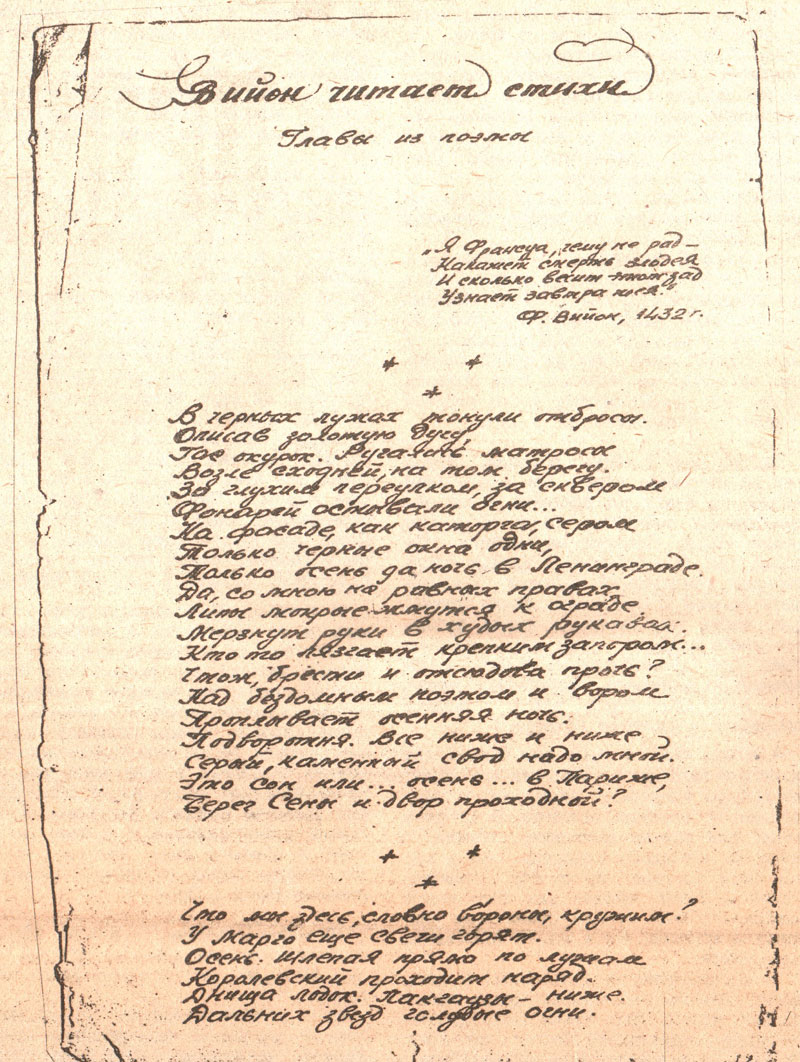 Вийон читает стихи
Главы из поэмы
„Я Франсуа, чему не рад –
Накажет смерть злодея
И сколько весит этот зад
Узнает завтра шея."
Ф. Вийон, 1432 г.
* *
*
В черных лужах тонули отбросы.
Описав золотую дугу,
Гас окурок. Ругались матросы
Возле сходней, на том берегу.
За глухим переулком, за сквером
Фонарей остывали огни...
На фасаде, как каторга, сером
Только черные окна одни,
Только осень да ночь в Ленинграде.
Да, со мною на равных правах,
Липы мокрые жмутся к ограде.
Мерзнут руки в худых рукавах.
Кто то лязгает крепким запором...
Что ж, брести и отсюдова прочь?
Над бездомным поэтом и вором
Проплывает осенняя ночь.
Подворотня. Все ниже и ниже
Серый, каменный свод надо мной.
Это сон или... осень... в Париже,
Берег Сены и двор проходной?
* *
*
Что мы здесь, словно вороны, кружим?
У Марго еще свечи горят.
Осень. Шлепая прямо по лужам
Королевский проходит наряд.
Днища лодок. Пакгаузы – ниже.
Дальних звезд голубые огни.